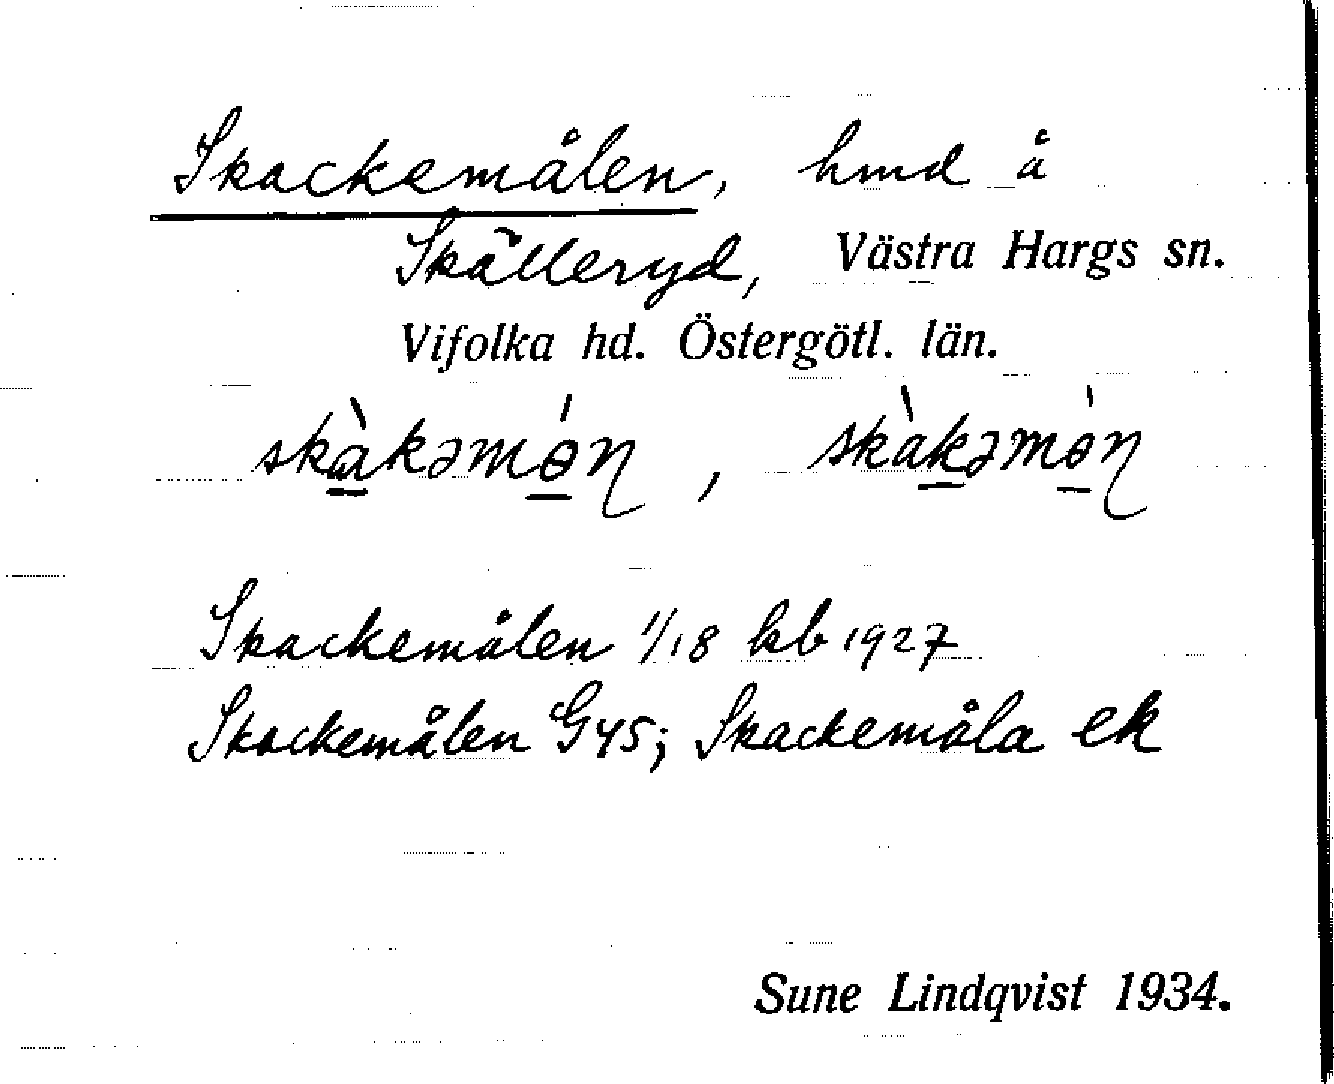 Skackemålen, hmd å
Skälleryd, Västra Hargs sn.
Vifolka hd. Östergötl. län.
skàkəmón, skàkəmón
Skackemålen 1/18 kb 1927
Skackemålen G45; Skackemåla ek
Sune Lindqvist 1934.